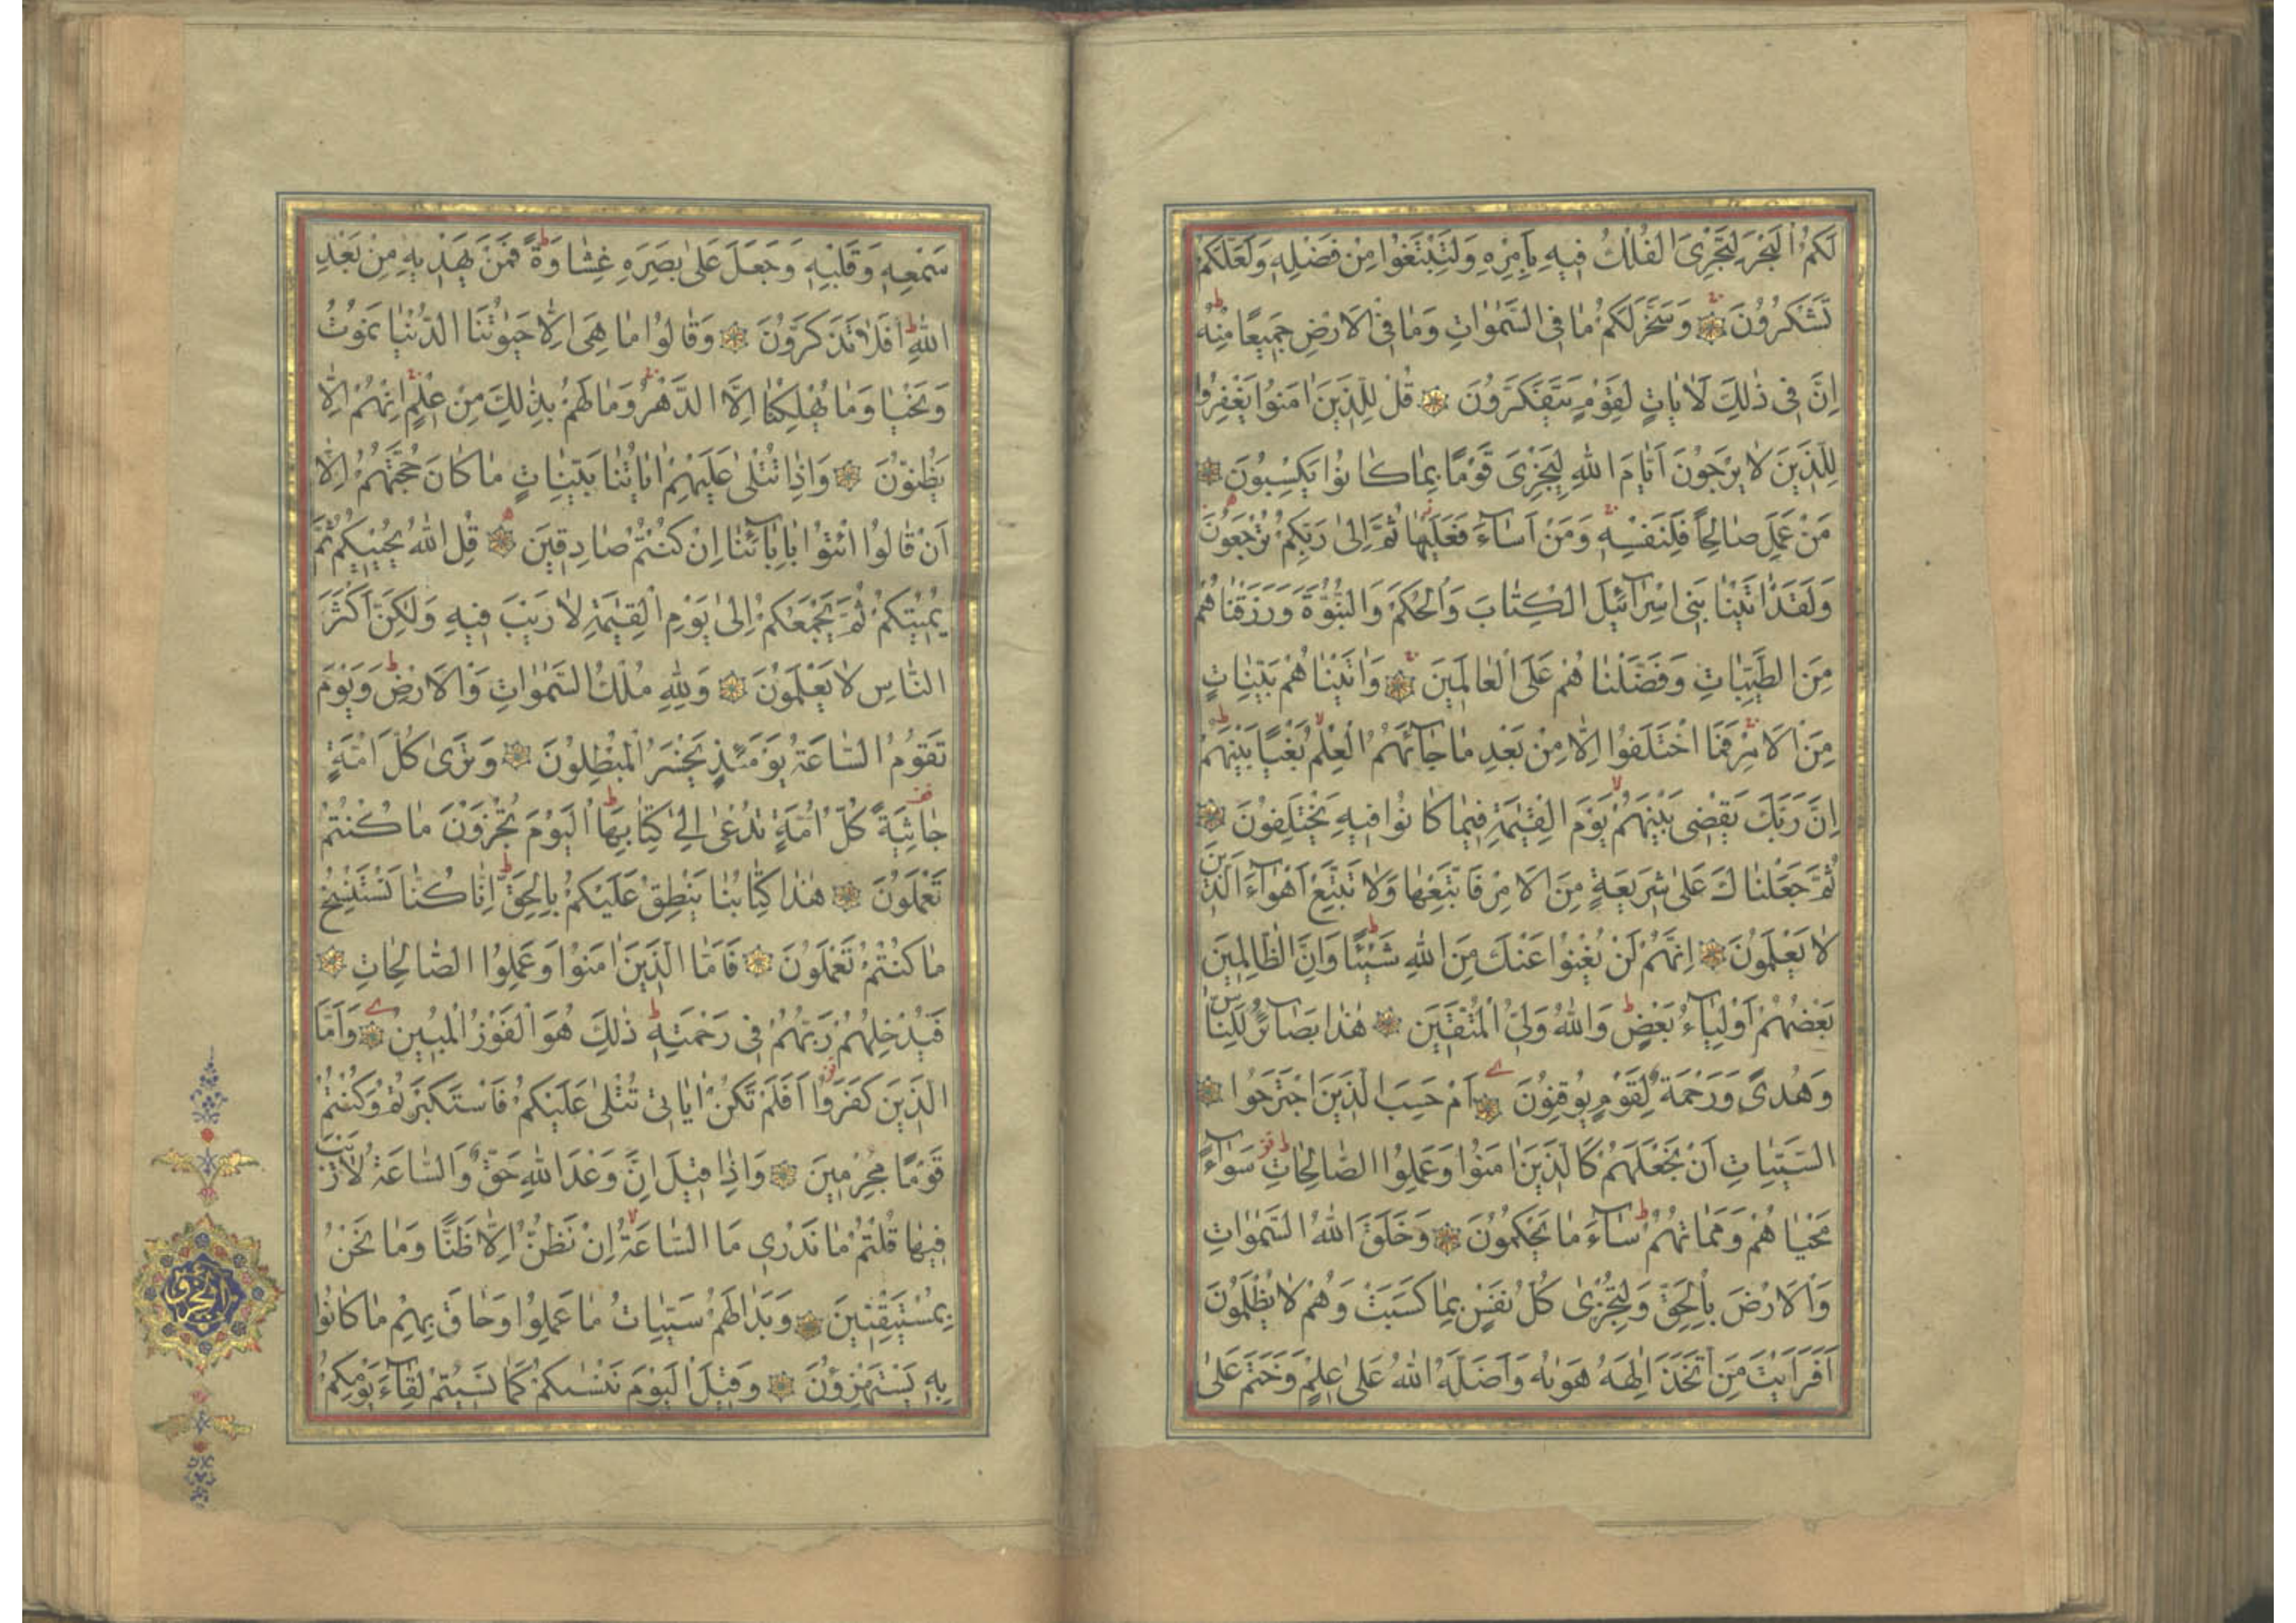 لَكُمُ الْبَحْرَ لِتَجْرِىَ الْفُلْكُ فِيهِ بِاَمْرِهِ وَلِتَبْتَغُوا مِنْ فَضْلِهِ وَلَعَلَّكُمْ
تَشْكُرُونَ وَسَخَّرَ لَكُمْ مَا فِى السَّمٰوَاتِ وَمَا فِى الْاَرْضِ جَمِيعًا مِنْهُ
اِنَّ فِى ذٰلِكَ لَاٰيَاتٍ لِقَوْمٍ يَتَفَكَّرُونَ قُلْ لِلَّذِينَ اٰمَنُوا يَغْفِرُوا
لِلَّذِينَ لَا يَرْجُونَ اَيَّامَ اللهِ لِيَجْزِىَ قَوْمًا بِمَا كَانُوا يَكْسِبُونَ
مَنْ عَمِلَ صَالِحًا فَلِنَفْسِهِ وَمَنْ اَسَاۤءَ فَعَلَيْهَا ثُمَّ اِلٰى رَبِّكُمْ تُرْجَعُونَ
وَلَقَدْ اٰتَيْنَا بَنِى اِسْرَاۤئِلَ الْكِتَابَ وَالْحُكْمَ وَالنُّبُوَّةَ وَرَزَقْنَاهُمْ
مِنَ الطَّيِّبَاتِ وَفَضَّلْنَاهُمْ عَلَى الْعَالَمِينَ وَاٰتَيْنَاهُمْ بَيِّنَاتٍ
مِنَ الْاَمْرِ فَمَا اخْتَلَفُوا اِلَّا مِنْ بَعْدِ مَا جَاۤءَهُمُ الْعِلْمُ بَغْيًا بَيْنَهُمْ
اِنَّ رَبَّكَ يَقْضِى بَيْنَهُمْ يَوْمَ الْقِيٰمَةِ فِيمَا كَانُوا فِيهِ يَخْتَلِفُونَ
ثُمَّ جَعَلْنَاكَ عَلٰى شَرِيعَةٍ مِنَ الْاَمْرِ فَاتَّبِعْهَا وَلَا تَتَّبِعْ اَهْوَاۤءَ الَّذِينَ
لَا يَعْلَمُونَ اِنَّهُمْ لَنْ يُغْنُوا عَنْكَ مِنَ اللهِ شَيْئًا وَاِنَّ الظَّالِمِينَ
بَعْضُهُمْ اَوْلِيَاۤءُ بَعْضٍ وَاللهُ وَلِىُّ الْمُتَّقِينَ هٰذَا بَصَاۤئِرُ لِلنَّاسِ
وَهُدًى وَرَحْمَةٌ لِقَوْمٍ يُوقِنُونَ اَمْ حَسِبَ الَّذِينَ اجْتَرَحُوا
السَّيِّئَاتِ اَنْ نَجْعَلَهُمْ كَالَّذِينَ اٰمَنُوا وَعَمِلُوا الصَّالِحَاتِ سَوَاۤءً
مَحْيَاهُمْ وَمَمَاتُهُمْ سَاۤءَ مَا يَحْكُمُونَ وَخَلَقَ اللهُ السَّمٰوَاتِ
وَالْاَرْضَ بِالْحَقِّ وَلِتُجْزٰى كُلُّ نَفْسٍ بِمَا كَسَبَتْ وَهُمْ لَا يُظْلَمُونَ
اَفَرَاَيْتَ مَنِ اتَّخَذَ اِلٰهَهُ هَوٰيهُ وَاَضَلَّهُ اللهُ عَلٰى عِلْمٍ وَخَتَمَ عَلٰى
سَمْعِهِ وَقَلْبِهِ وَجَعَلَ عَلٰى بَصَرِهِ غِشَاوَةً فَمَنْ يَهْدِيهِ مِنْ بَعْدِ
اللهِ اَفَلَا تَذَكَّرُونَ وَقَالُوا مَا هِىَ اِلَّا حَيٰوتُنَا الدُّنْيَا نَمُوتُ
وَنَحْيَا وَمَا يُهْلِكُنَا اِلَّا الدَّهْرُ وَمَا لَهُمْ بِذٰلِكَ مِنْ عِلْمٍ اِنْ هُمْ اِلَّا
يَظُنُّونَ وَاِذَا تُتْلٰى عَلَيْهِمْ اٰيَاتُنَا بَيِّنَاتٍ مَا كَانَ حُجَّتَهُمْ اِلَّا
اَنْ قَالُوا ائْتُوا بِاٰبَاۤئِنَا اِنْ كُنْتُمْ صَادِقِينَ قُلِ اللهُ يُحْيِيكُمْ ثُمَّ
يُمِيتُكُمْ ثُمَّ يَجْمَعُكُمْ اِلٰى يَوْمِ الْقِيٰمَةِ لَا رَيْبَ فِيهِ وَلٰكِنَّ اَكْثَرَ
النَّاسِ لَا يَعْلَمُونَ وَلِلّٰهِ مُلْكُ السَّمٰوَاتِ وَالْاَرْضِ وَيَوْمَ
تَقُومُ السَّاعَةُ يَوْمَئِذٍ يَخْسَرُ الْمُبْطِلُونَ وَتَرٰى كُلَّ اُمَّةٍ
جَاثِيَةً كُلُّ اُمَّةٍ تُدْعٰى اِلٰى كِتَابِهَا الْيَوْمَ تُجْزَوْنَ مَا كُنْتُمْ
تَعْمَلُونَ هٰذَا كِتَابُنَا يَنْطِقُ عَلَيْكُمْ بِالْحَقِّ اِنَّا كُنَّا نَسْتَنْسِخُ
مَا كُنْتُمْ تَعْمَلُونَ فَاَمَّا الَّذِينَ اٰمَنُوا وَعَمِلُوا الصَّالِحَاتِ
فَيُدْخِلُهُمْ رَبُّهُمْ فِى رَحْمَتِهِ ذٰلِكَ هُوَ الْفَوْزُ الْمُبِينُ وَاَمَّا
الَّذِينَ كَفَرُوا اَفَلَمْ تَكُنْ اٰيَاتِى تُتْلٰى عَلَيْكُمْ فَاسْتَكْبَرْتُمْ وَكُنْتُمْ
قَوْمًا مُجْرِمِينَ وَاِذَا قِيلَ اِنَّ وَعْدَ اللهِ حَقٌّ وَالسَّاعَةُ لَا رَيْبَ
فِيهَا قُلْتُمْ مَا نَدْرِى مَا السَّاعَةُ اِنْ نَظُنُّ اِلَّا ظَنًّا وَمَا نَحْنُ
بِمُسْتَيْقِنِينَ وَبَدَا لَهُمْ سَيِّئَاتُ مَا عَمِلُوا وَحَاقَ بِهِمْ مَا كَانُوا
بِهِ يَسْتَهْزِؤُنَ وَقِيلَ الْيَوْمَ نَنْسٰيكُمْ كَمَا نَسِيتُمْ لِقَاۤءَ يَوْمِكُمْ